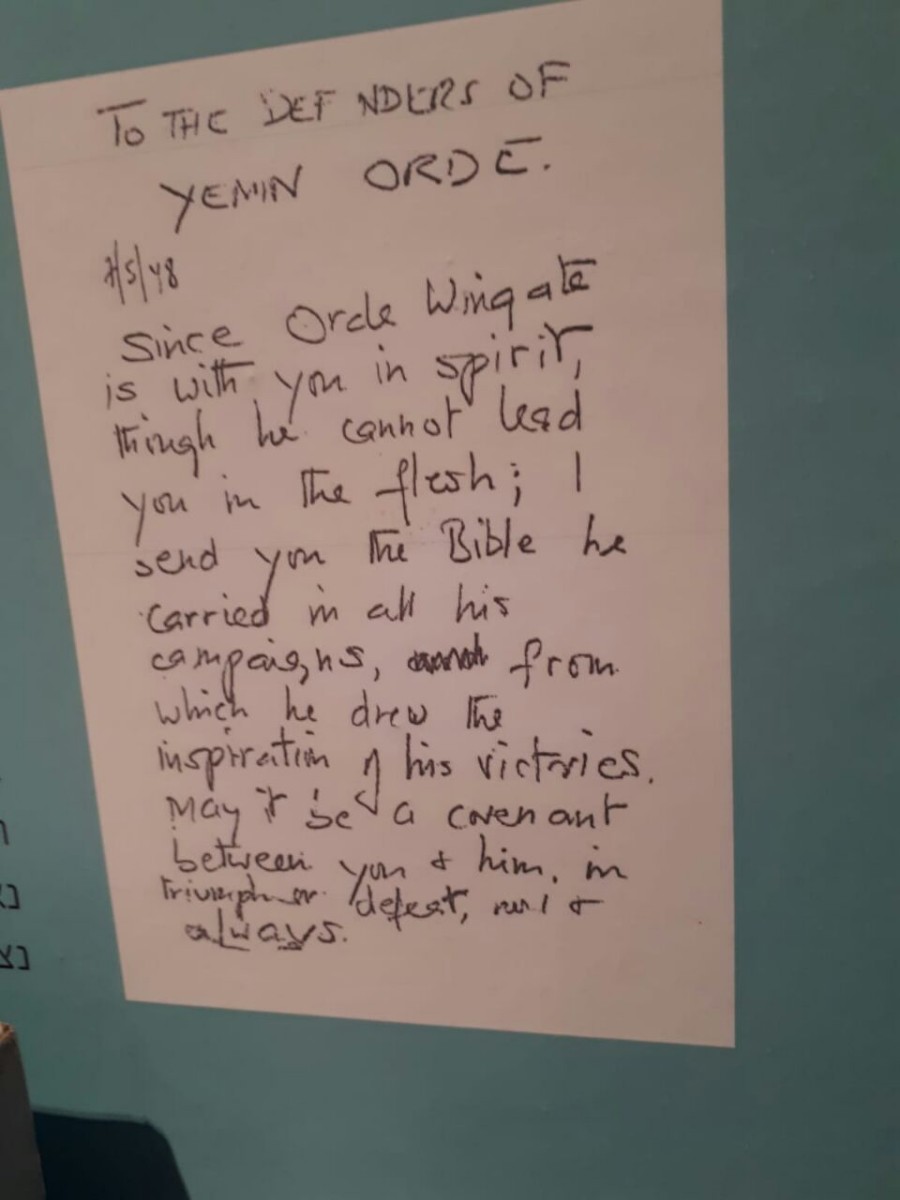 TO THE DEFENDERS OF
YEMIN ORDE.
7/5/48
Since Orde Wingate
is with you in spirit,
though he cannot lead
you in the flesh; I
send you the Bible he
carried in all his
campaigns, from
which he drew the
inspiration of his victories.
May it be a covenant
between you & him, in
triumph or defeat, now &
always.